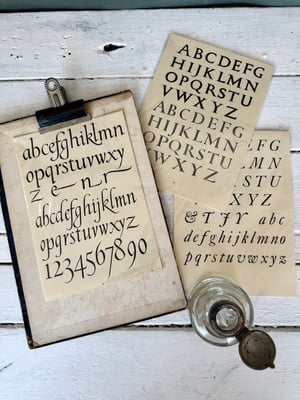 abcdefghijklmn
opqrstuvwxy
z e n r
abcdefghijklmn
opqrstuvwxyz
1234567890
ABCDEFG
HIJKLMN
OPQRSTU
VWXYZ
ABCDEFG
HIJKLMN
OPQRSTU
VWXYZ
EFG
LMN
STU
XYZ
& T J Y abc
defghijklmno
pqrstuvwxyz